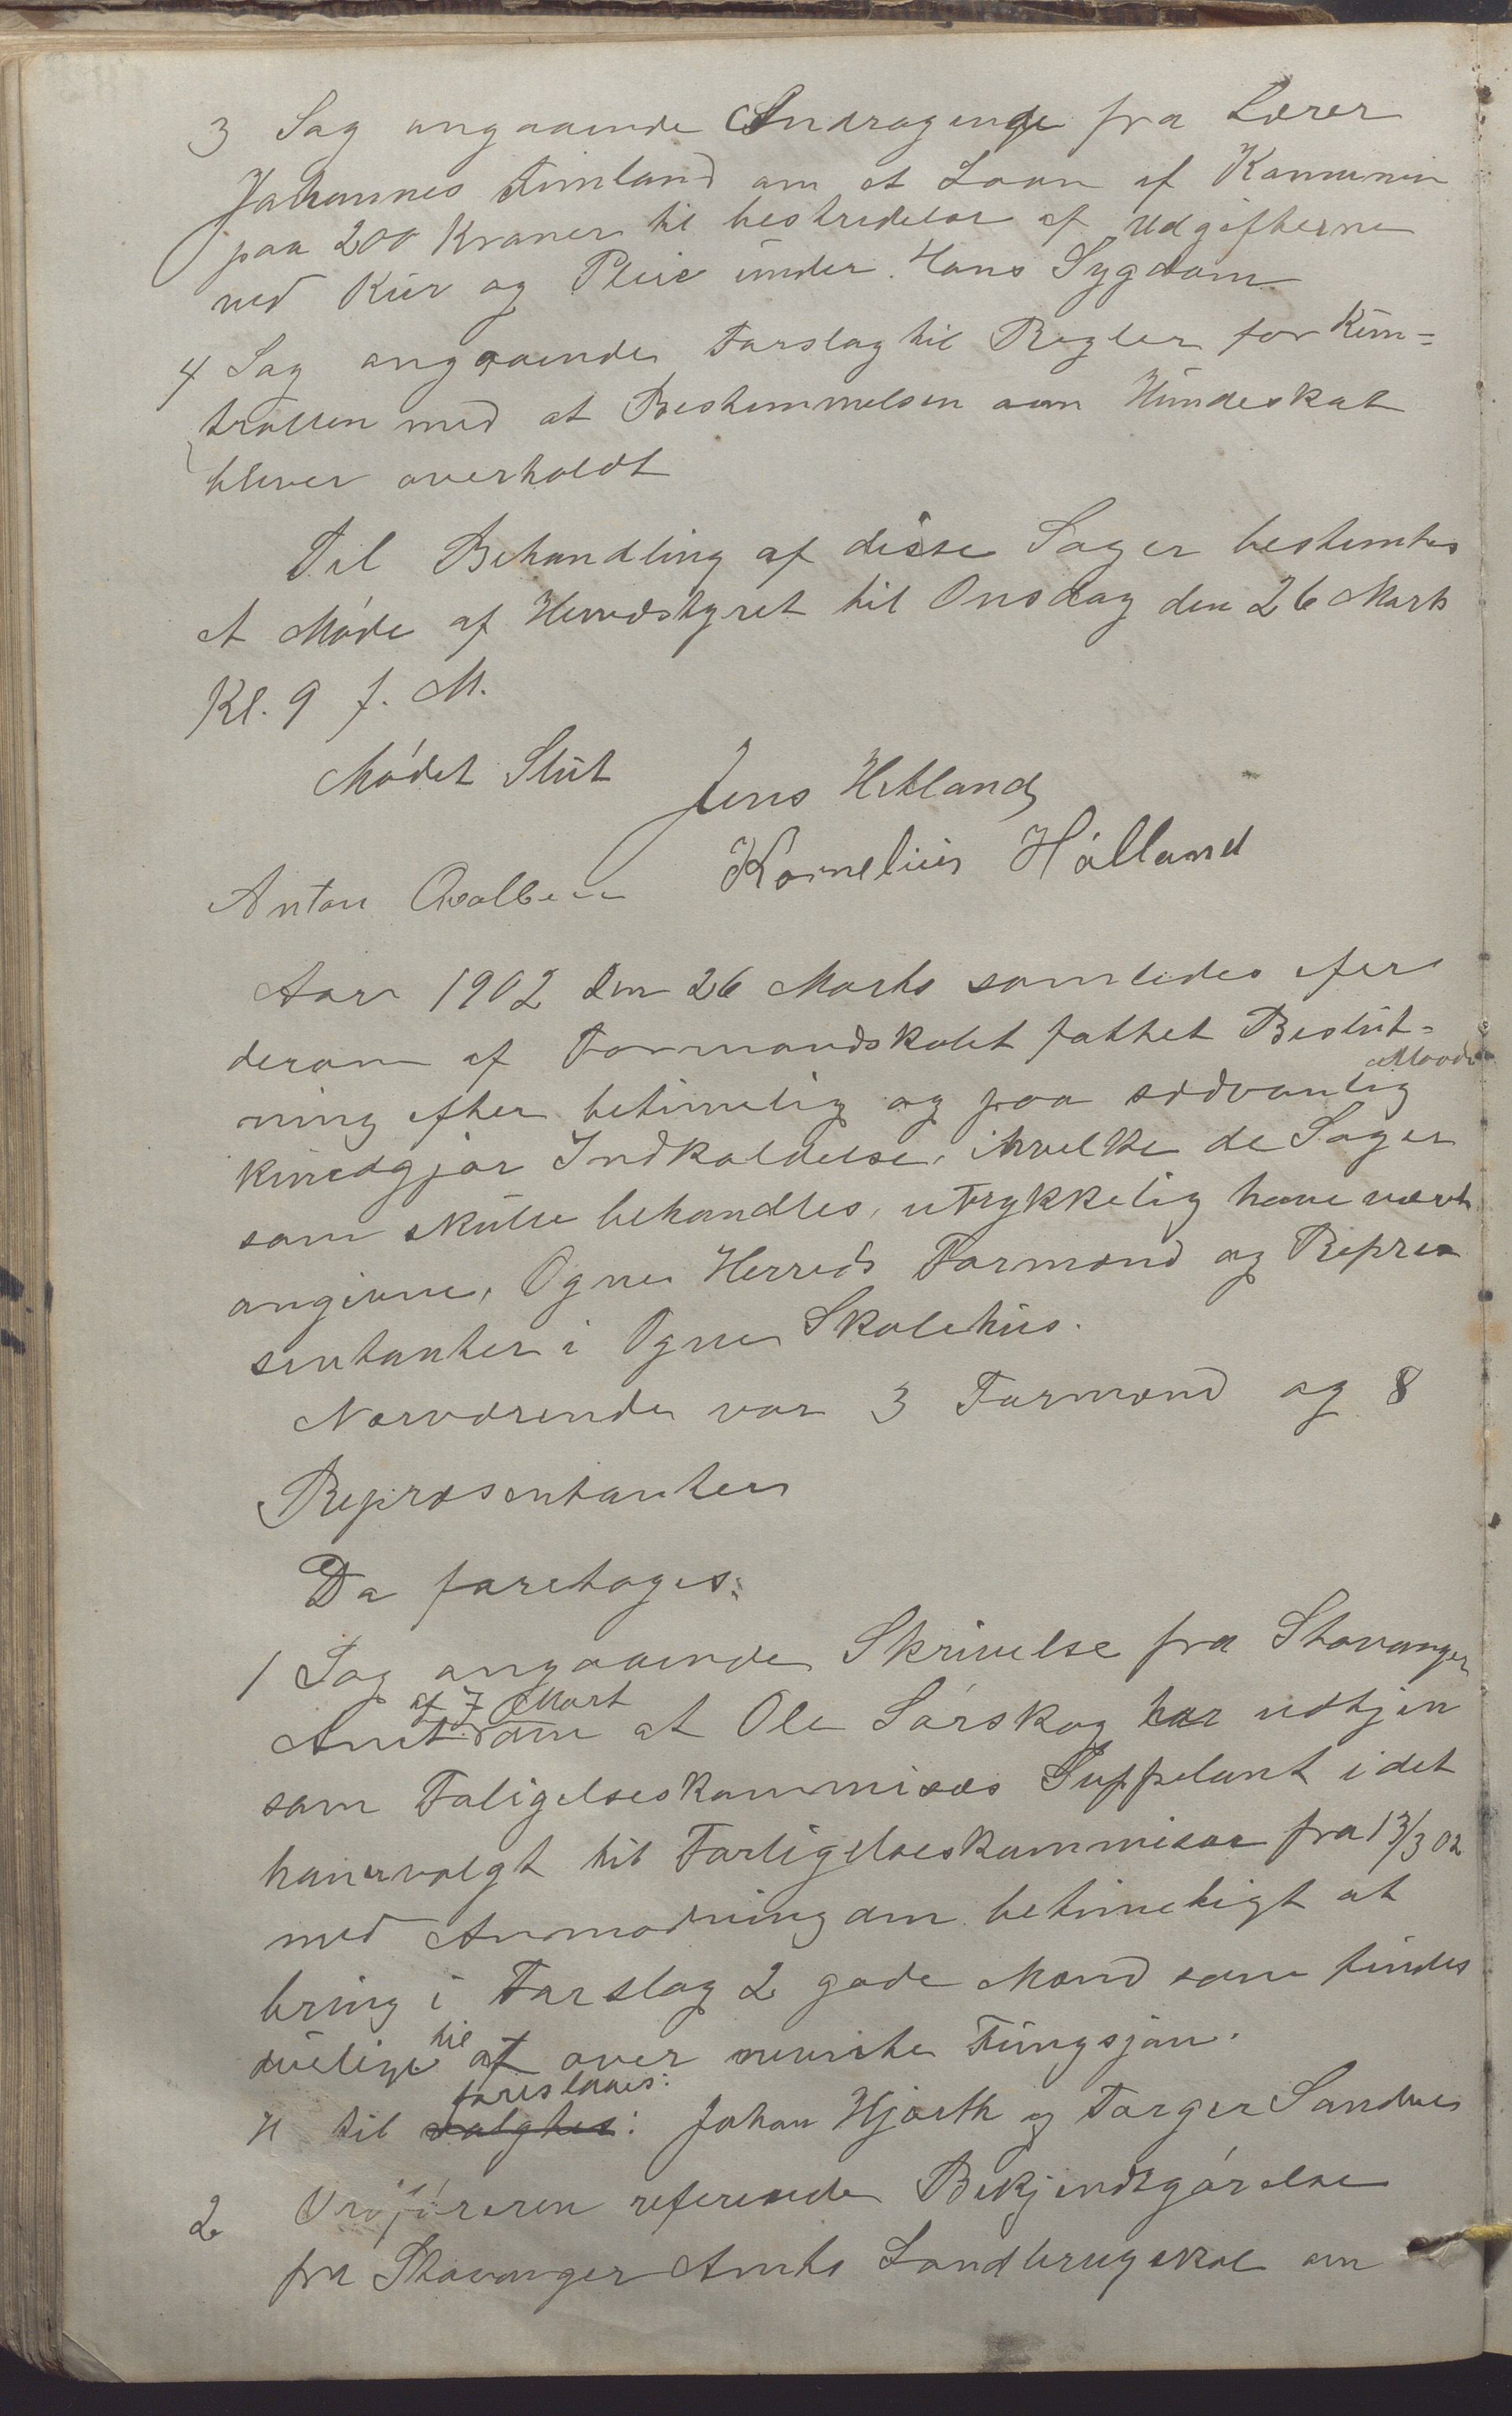 3 Sag angaaende Andragende fra Lærer
Johannes Fimland om et Laan af Kommunen
paa 200 Kroner til bestridelse af Udgifterne
ved Kur og Pleie under Hans Sygdom
4 Sag angaaende Forslag til Regler for Kun=
trollen med at Bestemmelsen om Hundeskat
bliver overholdt
Til Behandling af disse Sager bestemtes
et Møde af Herredstyret til Onsdag den 26 Marts
Kl. 9 f. M.
Mødet Slut Jens Hetland
Kornelius Hålland
Anton
Aar 1902 den 26 Marts samledes efter
derom af Formandskabet fattet Beslut=
ning efter betimelig og paa sædvanlig Maade
kundgjor Indkaldelse, i hvilke de Sager
som skulle behandles, utrykkelig have været
angivne, Ogne Herreds Formænd og Repræ
sentanter i Ogne Skolehus.
Nærværende var 3 Formænd og 8
Repræsentanter
Da foretoges:
1 Sag angaaende Skrivelse fra Stavanger
Amt af 7 Mart om at Ole Sørskog har udtjen
som Foligelseskommisæs Suppelant idet
han er valgt til Forligelseskommisær fra 13/3 02
med Anmodning om betimeligt at
bring i Forslag 2 gode Mænd som findes
duelige til at over nevnte Fungsjon.
H til valgtes: foreslaaes: Johan Hjorth og Torger Sandnes
2 Ordføreren refererede Bekjendtgørelse
fra Stavanger Amts Landbrugskol om